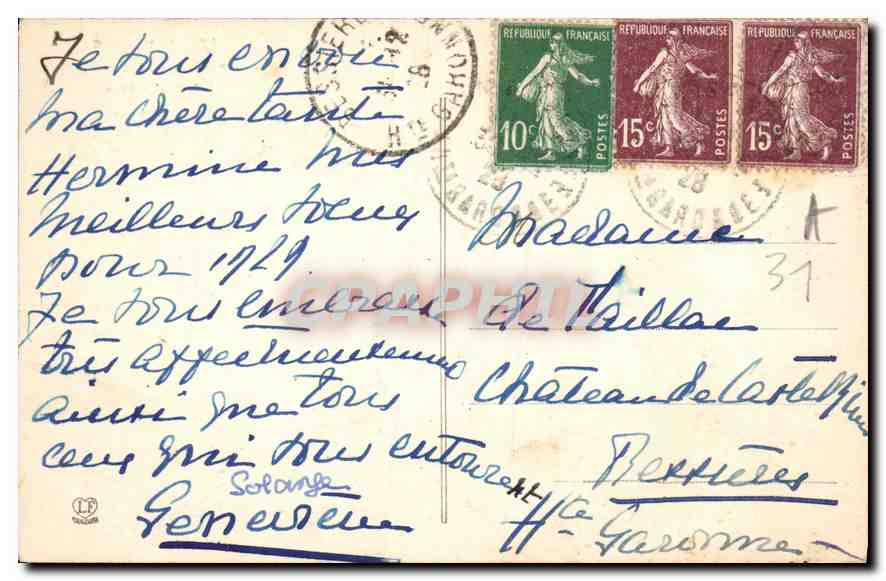 Je vous envoie
ma chère tante
Hermine mes
meilleurs vœux
pour 1929
Je vous embrasse
très affectueusement
ainsi que tous
ceux qui vous entourent
Solange
Geneviève
LF
RÉPUBLIQUE FRANÇAISE
10c
POSTES
RÉPUBLIQUE FRANÇAISE
15c
POSTES
RÉPUBLIQUE FRANÇAISE
15c
POSTES
Hte GARONNE
28
28
A
31
Madame
de Maillac
Château de Castel
Bessières
Hte Garonne
CPAPHIL